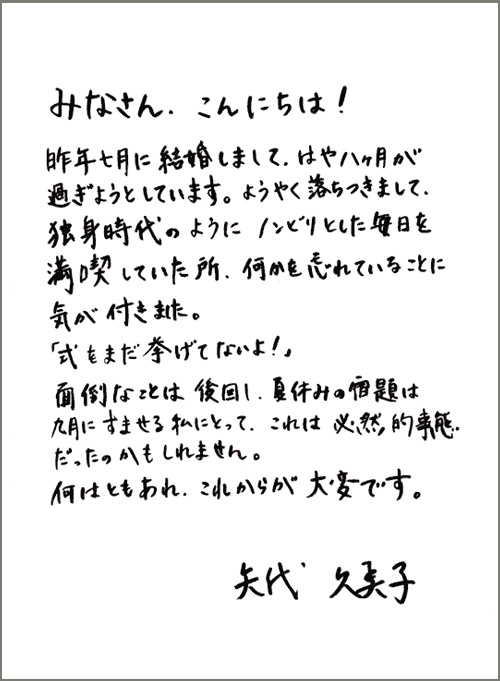 みなさん、こんにちは!
昨年七月に結婚しまして、はや八ヶ月が
過ぎようとしています。ようやく落ちつきまして、
独身時代のように ノンビリとした毎日を
満喫していた所、何かを忘れていることに
気が付きました。
「式をまだ挙げてないよ!」
面倒なことは後回し、夏休みの宿題は
九月にすませる私にとって、これは必然的事態
だったのかもしれません。
何はともあれ、これからが大変です。
矢代 久美子